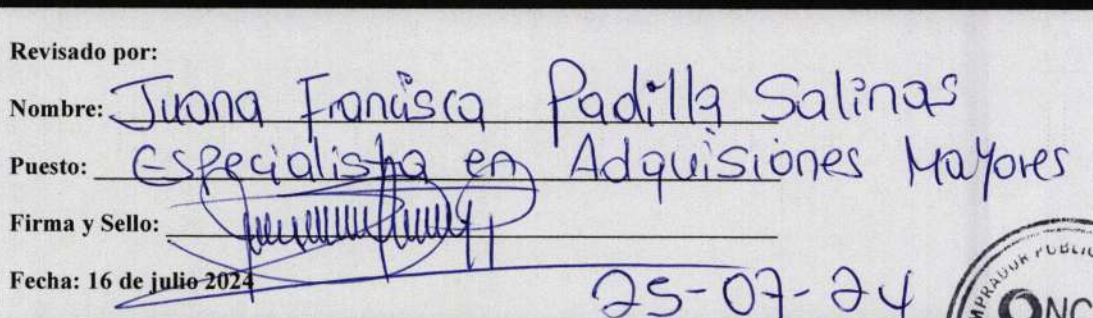 Revisado por:
Nombre: Juana Francisca Padilla Salinas
Puesto: Especialista en Adquisiones Mayores
Firma y Sello:
Fecha: 16 de julio 2024
25-07-24
ONC